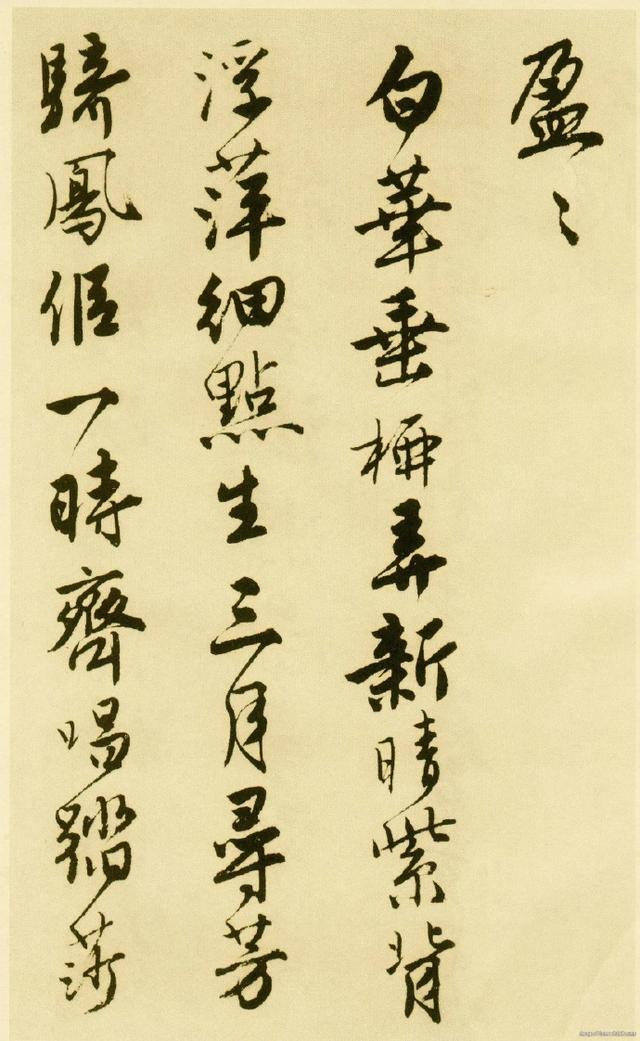 盈〻
白華垂弄新晴紫背
浮萍細點生三月尋芳
騎鳳侶一時齊唱踏莎